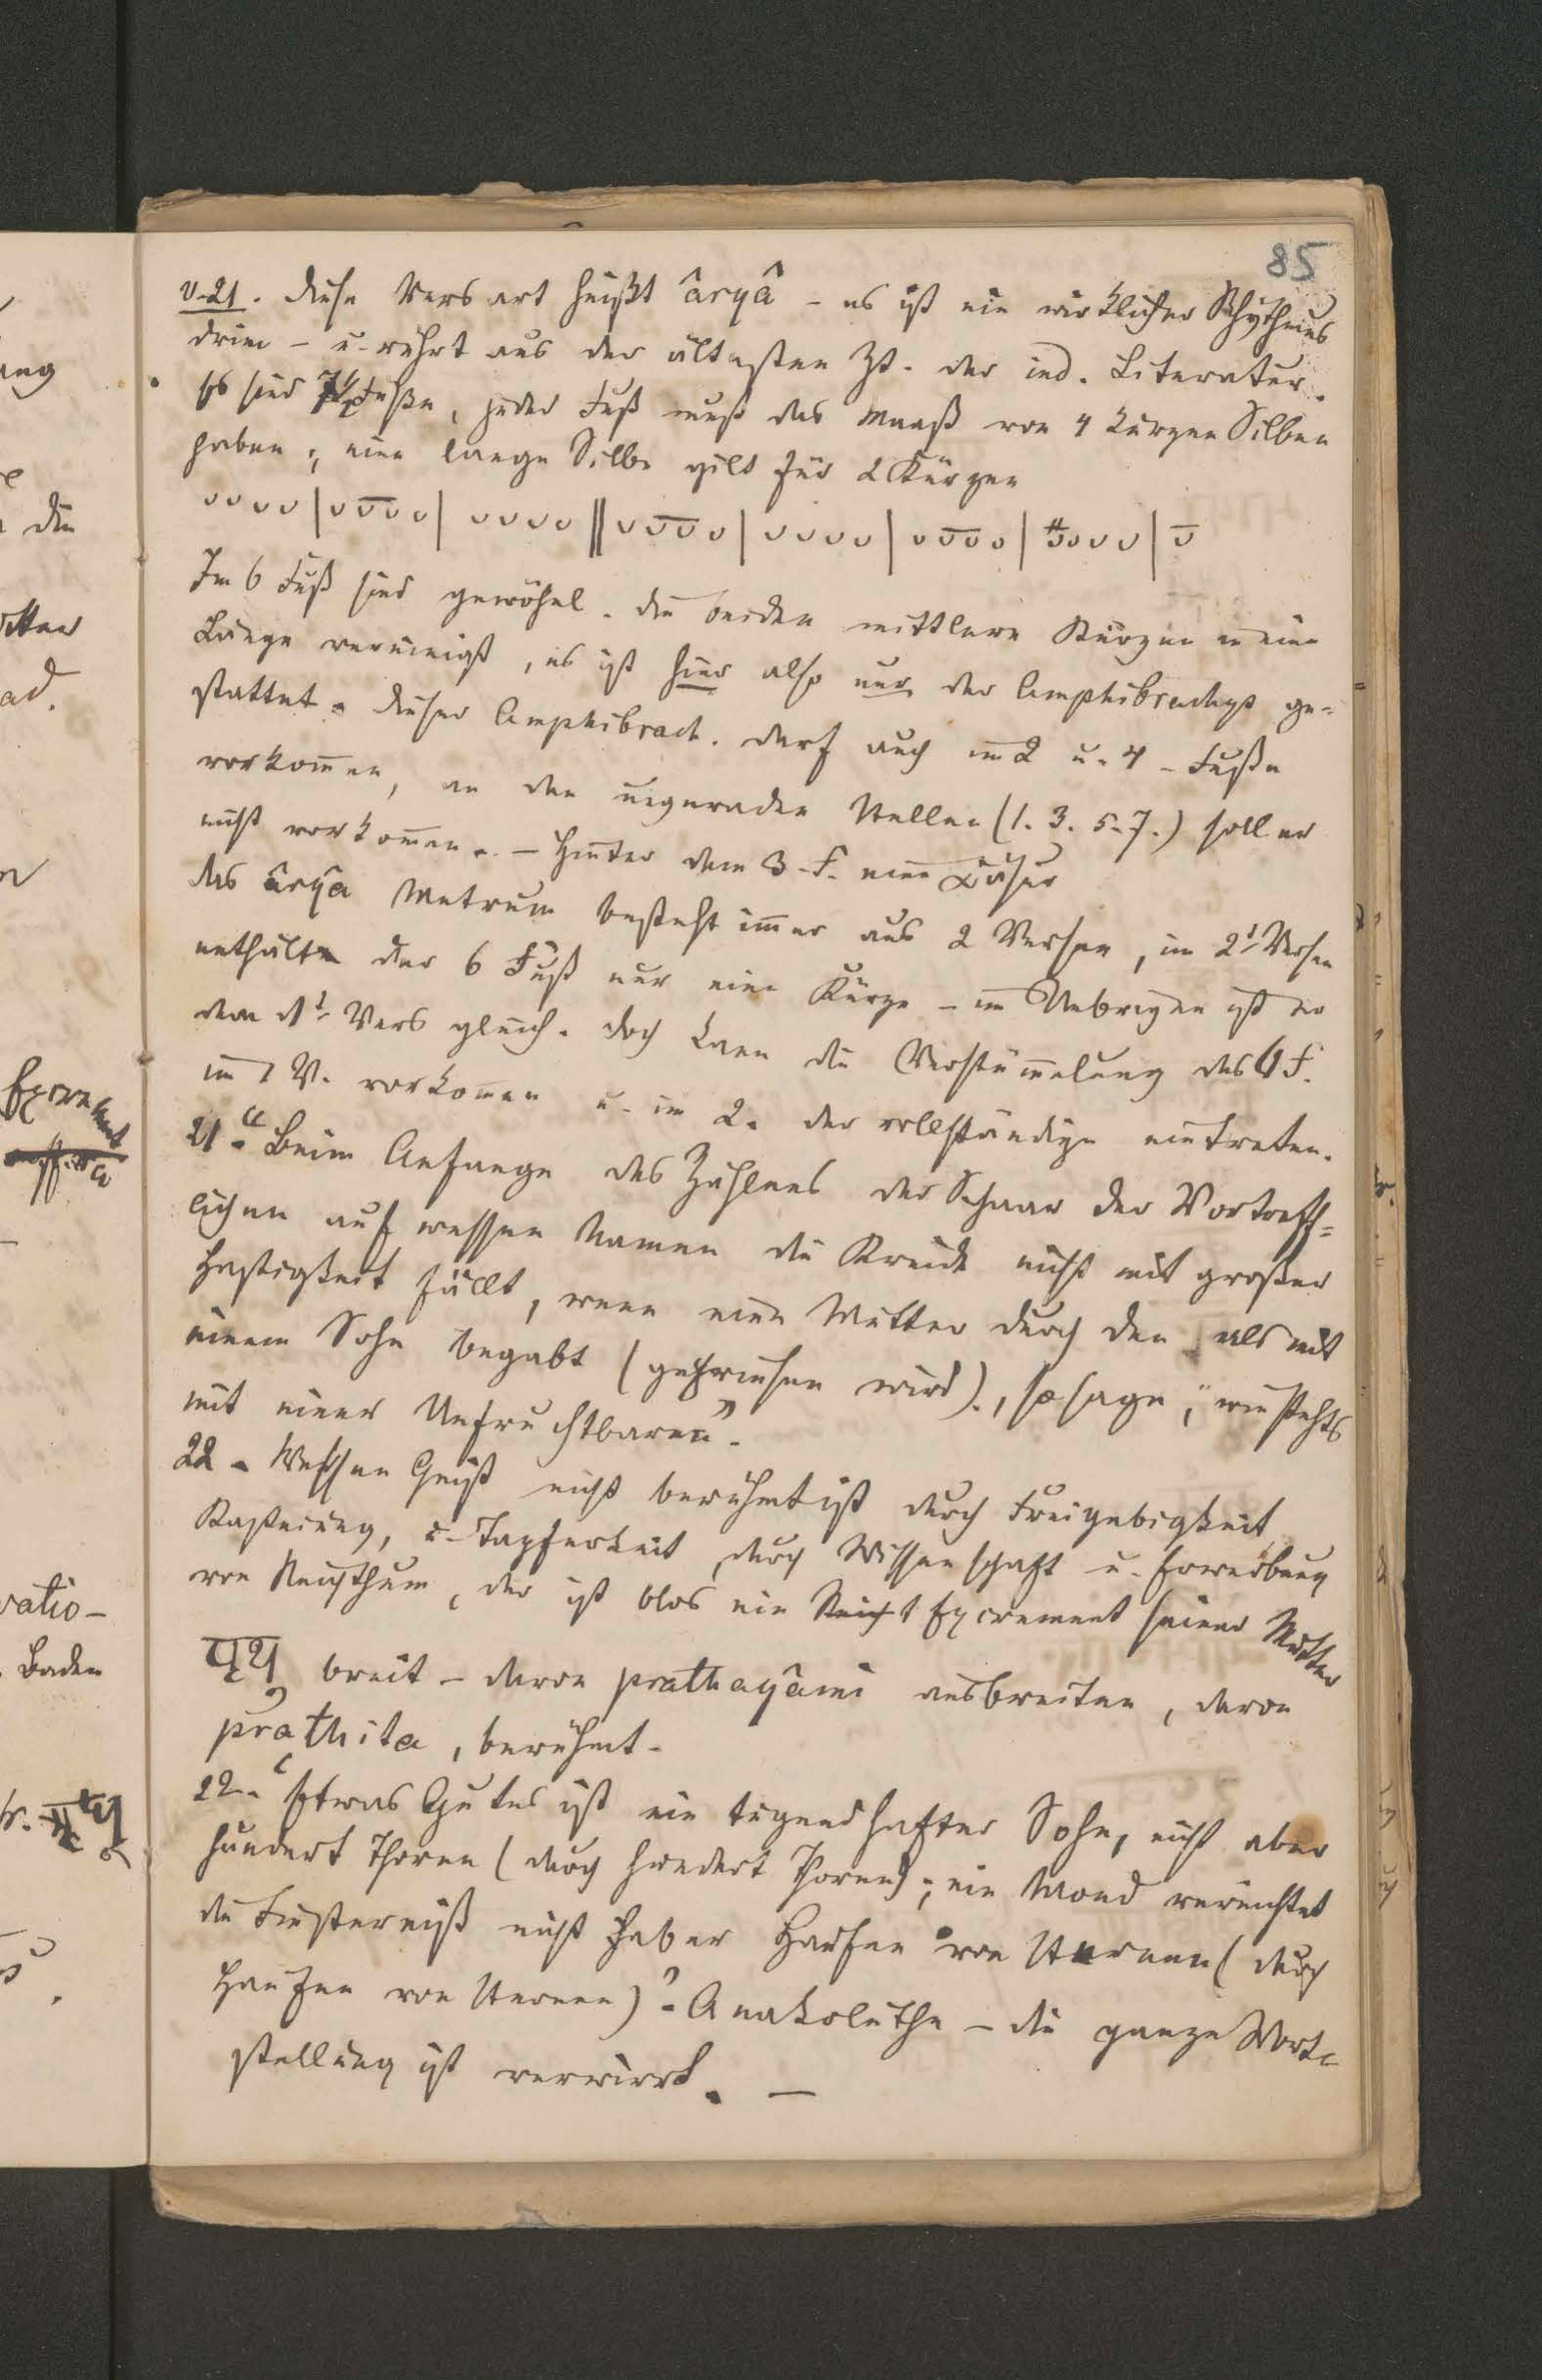 85
v. 21. Diese Versart heißt âryâ – es ist ein wirklicher Rhythmus
drin – u. rührt aus der ältesten Zt. der ind. Literatur.
Es sind 7½ Füße, jeder Fuß muß das Maaß von 4 kurzen Silben
haben; eine lange Silbe gilt für 2 Kürzen
Im 6 Fuß sind gewöhnl. die beiden mittlern Kürzen in eine
Länge vereinigt, es ist hier also nur der Amphibrachys ge=
stattet. Dieser Amphibrach. darf auch im 2 u. 4. Fuße
vorkom̄en, an den ungeraden Stellen (1. 3. 5. 7.) soll er
nicht vorkom̄en. – Hinter dem 3. F. eine Cäsur
das âryâ Metrum besteht im̄er aus 2 Versen, im 2t Verse
enthält der 6 Fuß nur eine Kürze – im Uebrigen ist er
dem 1t Vers gleich. doch kann die Verstüm̄elung des 6 F.
im 1 V. vorkom̄en u. im 2. der vollständige eintreten.
21. "Beim Anfange des Zählens der Schaar der Vortreff=
lichen auf wessen Namen die Kreide nicht mit großer
Hastigkeit fällt, wenn eine Mutter durch den als mit
einem Sohn begabt (gepriesen wird)., so sage, „wie stehts
mit einer Unfruchtbaren".
22. Wessen Geist nicht berühmt ist durch Freigebigkeit
Kasteiung, u. Tapferkeit, durch Wissenschaft u. Erwerbung
von Reichthum, der ist blos ein Excrement seiner Mutter
पृथु breit – davon prathayâmi ausbreiten, davon
prathita, berühmt.
22. "Etwas Gutes ist ein tugendhafter Sohn, nicht aber
hundert Thoren (durch hundert Thoren); ein Mond vernichtet
die Finsterniß nicht aber Haufen von Sternen (durch
Haufen von Sternen)". Anakoluthe – die ganze Wort=
stellung ist verwirrt. –